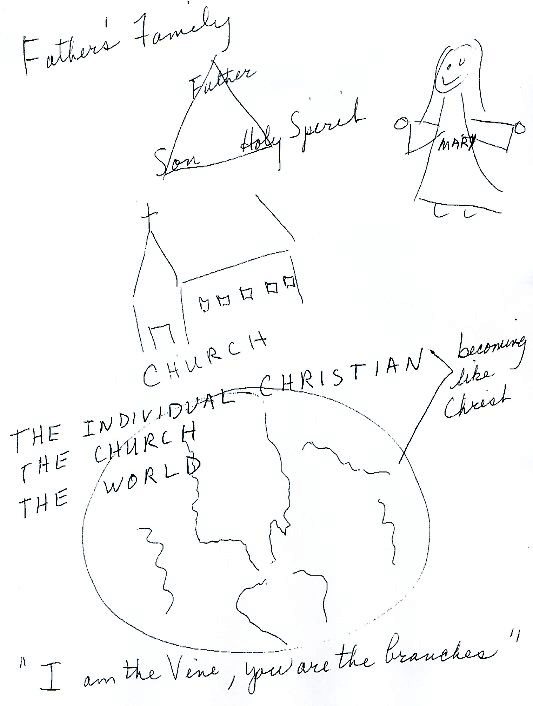 Father's Family
Father
Son Holy Spirit
MARY
CHURCH
becoming
like
Christ
THE INDIVIDUAL CHRISTIAN
THE CHURCH
THE WORLD
"I am the Vine, you are the branches"